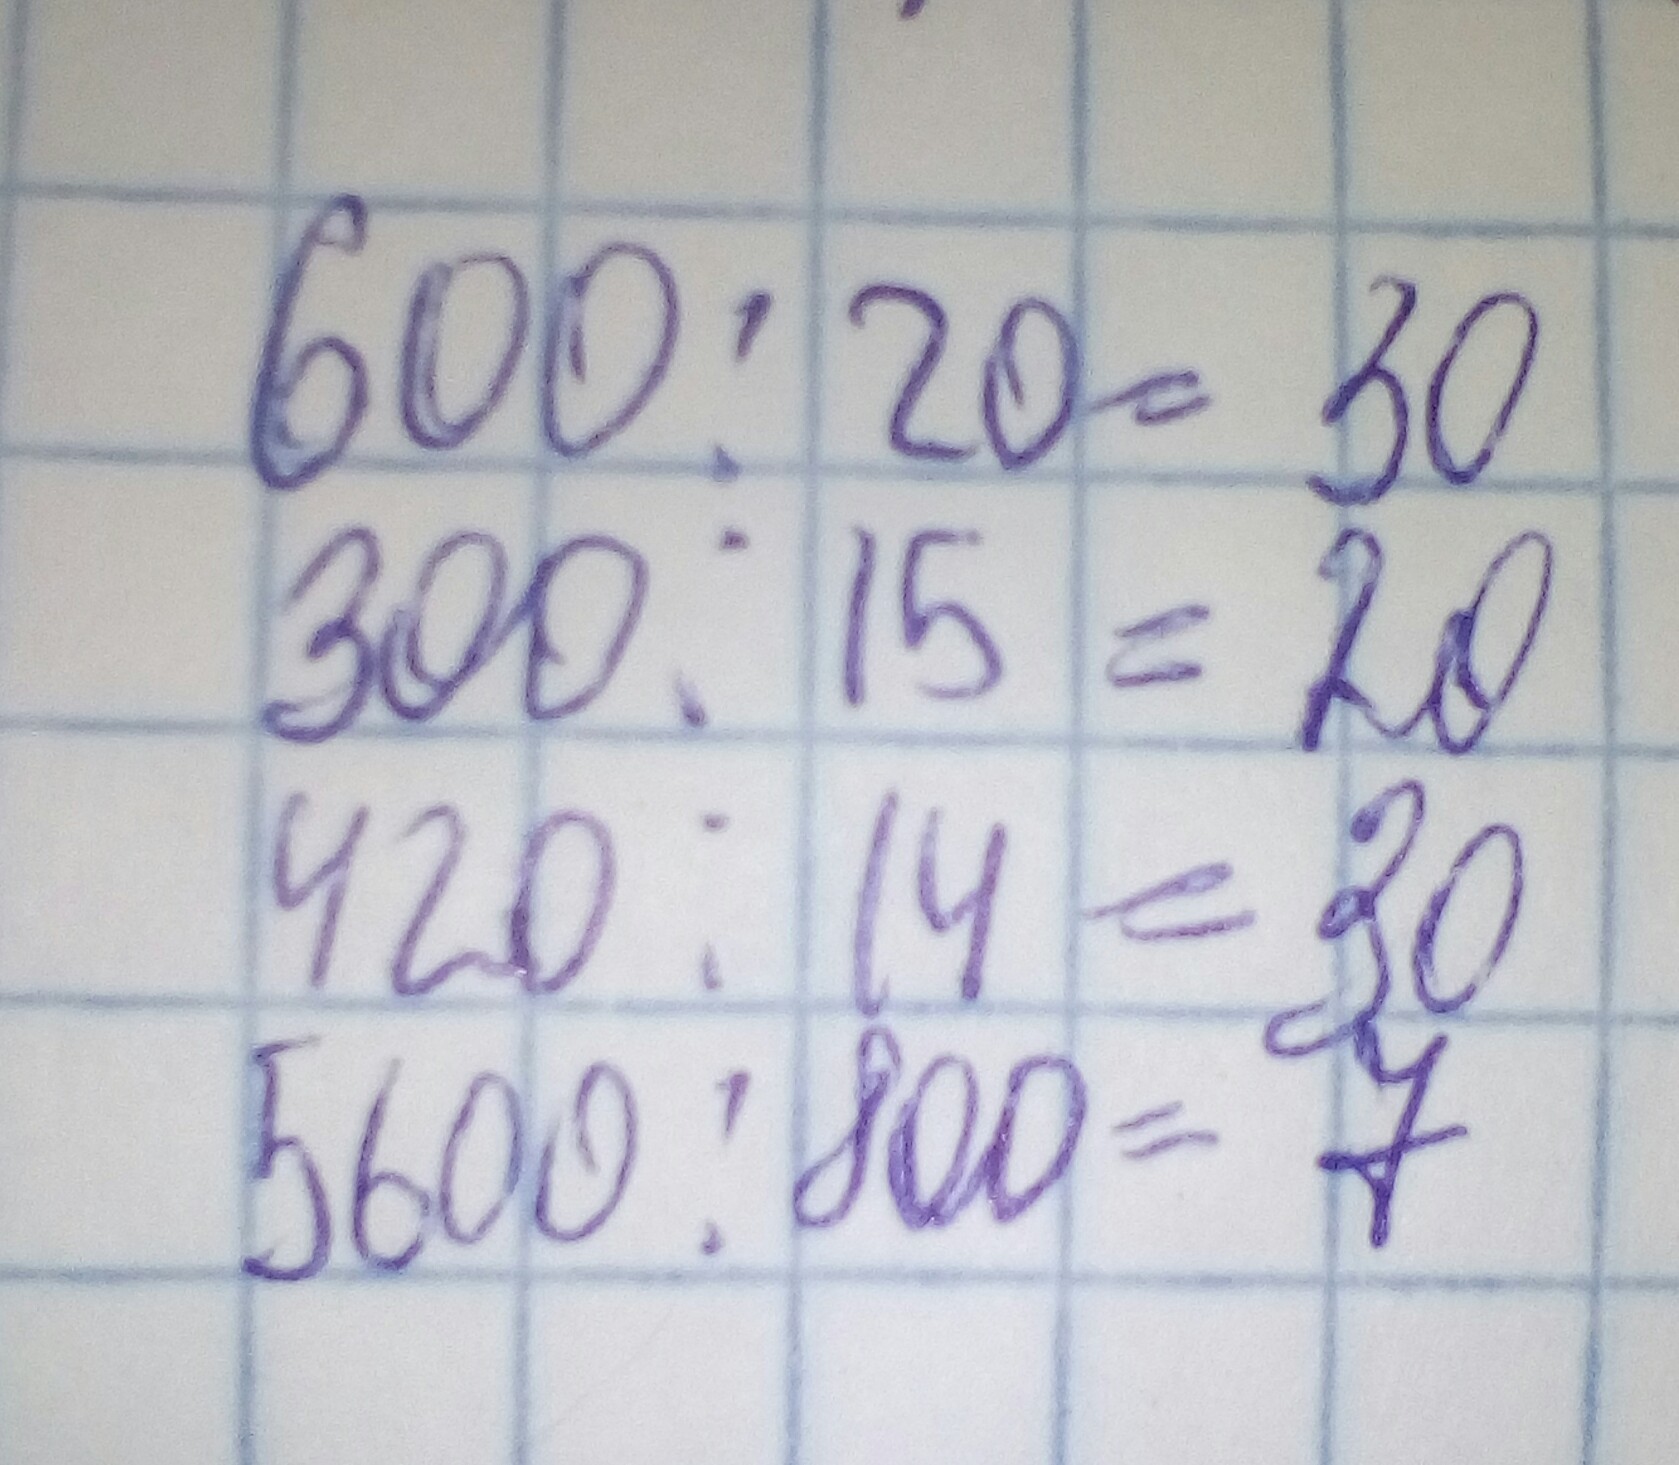 600 : 20 = 30
300 : 15 = 20
420 : 14 = 30
5600 : 800 = 7